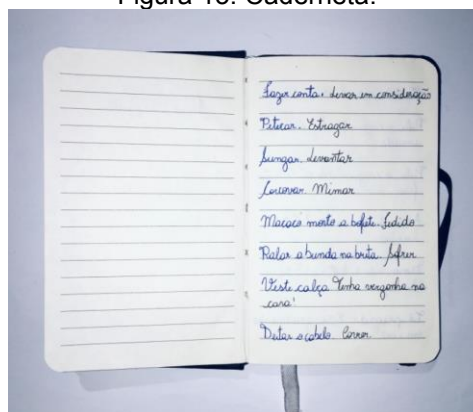 Figura 10. Caderneta.
Fazer conta. Levar em consideração
Petecar. Estragar
Sungar. Levantar
Mimar
Macaco morto a bofete. Fedido
Ralar a bunda na brita. Sofrer
Veste calça Tenha vergonha na
cara!
Deitar o cabelo. Correr